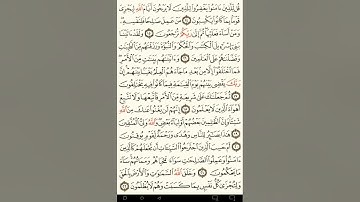 قُل لِّلَّذِينَ ءَامَنُوا۟ يَغْفِرُوا۟ لِلَّذِينَ لَا يَرْجُونَ أَيَّامَ ٱللَّهِ لِيَجْزِىَ
قَوْمًۢا بِمَا كَانُوا۟ يَكْسِبُونَ ١٤ مَنْ عَمِلَ صَٰلِحًا فَلِنَفْسِهِۦ
وَمَنْ أَسَآءَ فَعَلَيْهَا ثُمَّ إِلَىٰ رَبِّكُمْ تُرْجَعُونَ ١٥ وَلَقَدْ ءَاتَيْنَا
بَنِىٓ إِسْرَٰٓءِيلَ ٱلْكِتَٰبَ وَٱلْحُكْمَ وَٱلنُّبُوَّةَ وَرَزَقْنَٰهُم مِّنَ ٱلطَّيِّبَٰتِ
وَفَضَّلْنَٰهُمْ عَلَى ٱلْعَٰلَمِينَ ١٦ وَءَاتَيْنَٰهُم بَيِّنَٰتٍ مِّنَ ٱلْأَمْرِ
فَمَا ٱخْتَلَفُوٓا۟ إِلَّا مِنۢ بَعْدِ مَا جَآءَهُمُ ٱلْعِلْمُ بَغْيًۢا بَيْنَهُمْ إِنَّ
رَبَّكَ يَقْضِى بَيْنَهُمْ يَوْمَ ٱلْقِيَٰمَةِ فِيمَا كَانُوا۟ فِيهِ يَخْتَلِفُونَ
١٧ ثُمَّ جَعَلْنَٰكَ عَلَىٰ شَرِيعَةٍ مِّنَ ٱلْأَمْرِ فَٱتَّبِعْهَا وَلَا تَتَّبِعْ
أَهْوَآءَ ٱلَّذِينَ لَا يَعْلَمُونَ ١٨ إِنَّهُمْ لَن يُغْنُوا۟ عَنكَ مِنَ ٱللَّهِ
شَيْـًٔا وَإِنَّ ٱلظَّٰلِمِينَ بَعْضُهُمْ أَوْلِيَآءُ بَعْضٍ وَٱللَّهُ وَلِىُّ ٱلْمُتَّقِينَ
١٩ هَٰذَا بَصَٰٓئِرُ لِلنَّاسِ وَهُدًى وَرَحْمَةٌ لِّقَوْمٍ يُوقِنُونَ ٢٠
أَمْ حَسِبَ ٱلَّذِينَ ٱجْتَرَحُوا۟ ٱلسَّيِّـَٔاتِ أَن نَّجْعَلَهُمْ كَٱلَّذِينَ
ءَامَنُوا۟ وَعَمِلُوا۟ ٱلصَّٰلِحَٰتِ سَوَآءً مَّحْيَاهُمْ وَمَمَاتُهُمْ سَآءَ
مَا يَحْكُمُونَ ٢١ وَخَلَقَ ٱللَّهُ ٱلسَّمَٰوَٰتِ وَٱلْأَرْضَ بِٱلْحَقِّ
وَلِتُجْزَىٰ كُلُّ نَفْسٍۭ بِمَا كَسَبَتْ وَهُمْ لَا يُظْلَمُونَ ٢٢